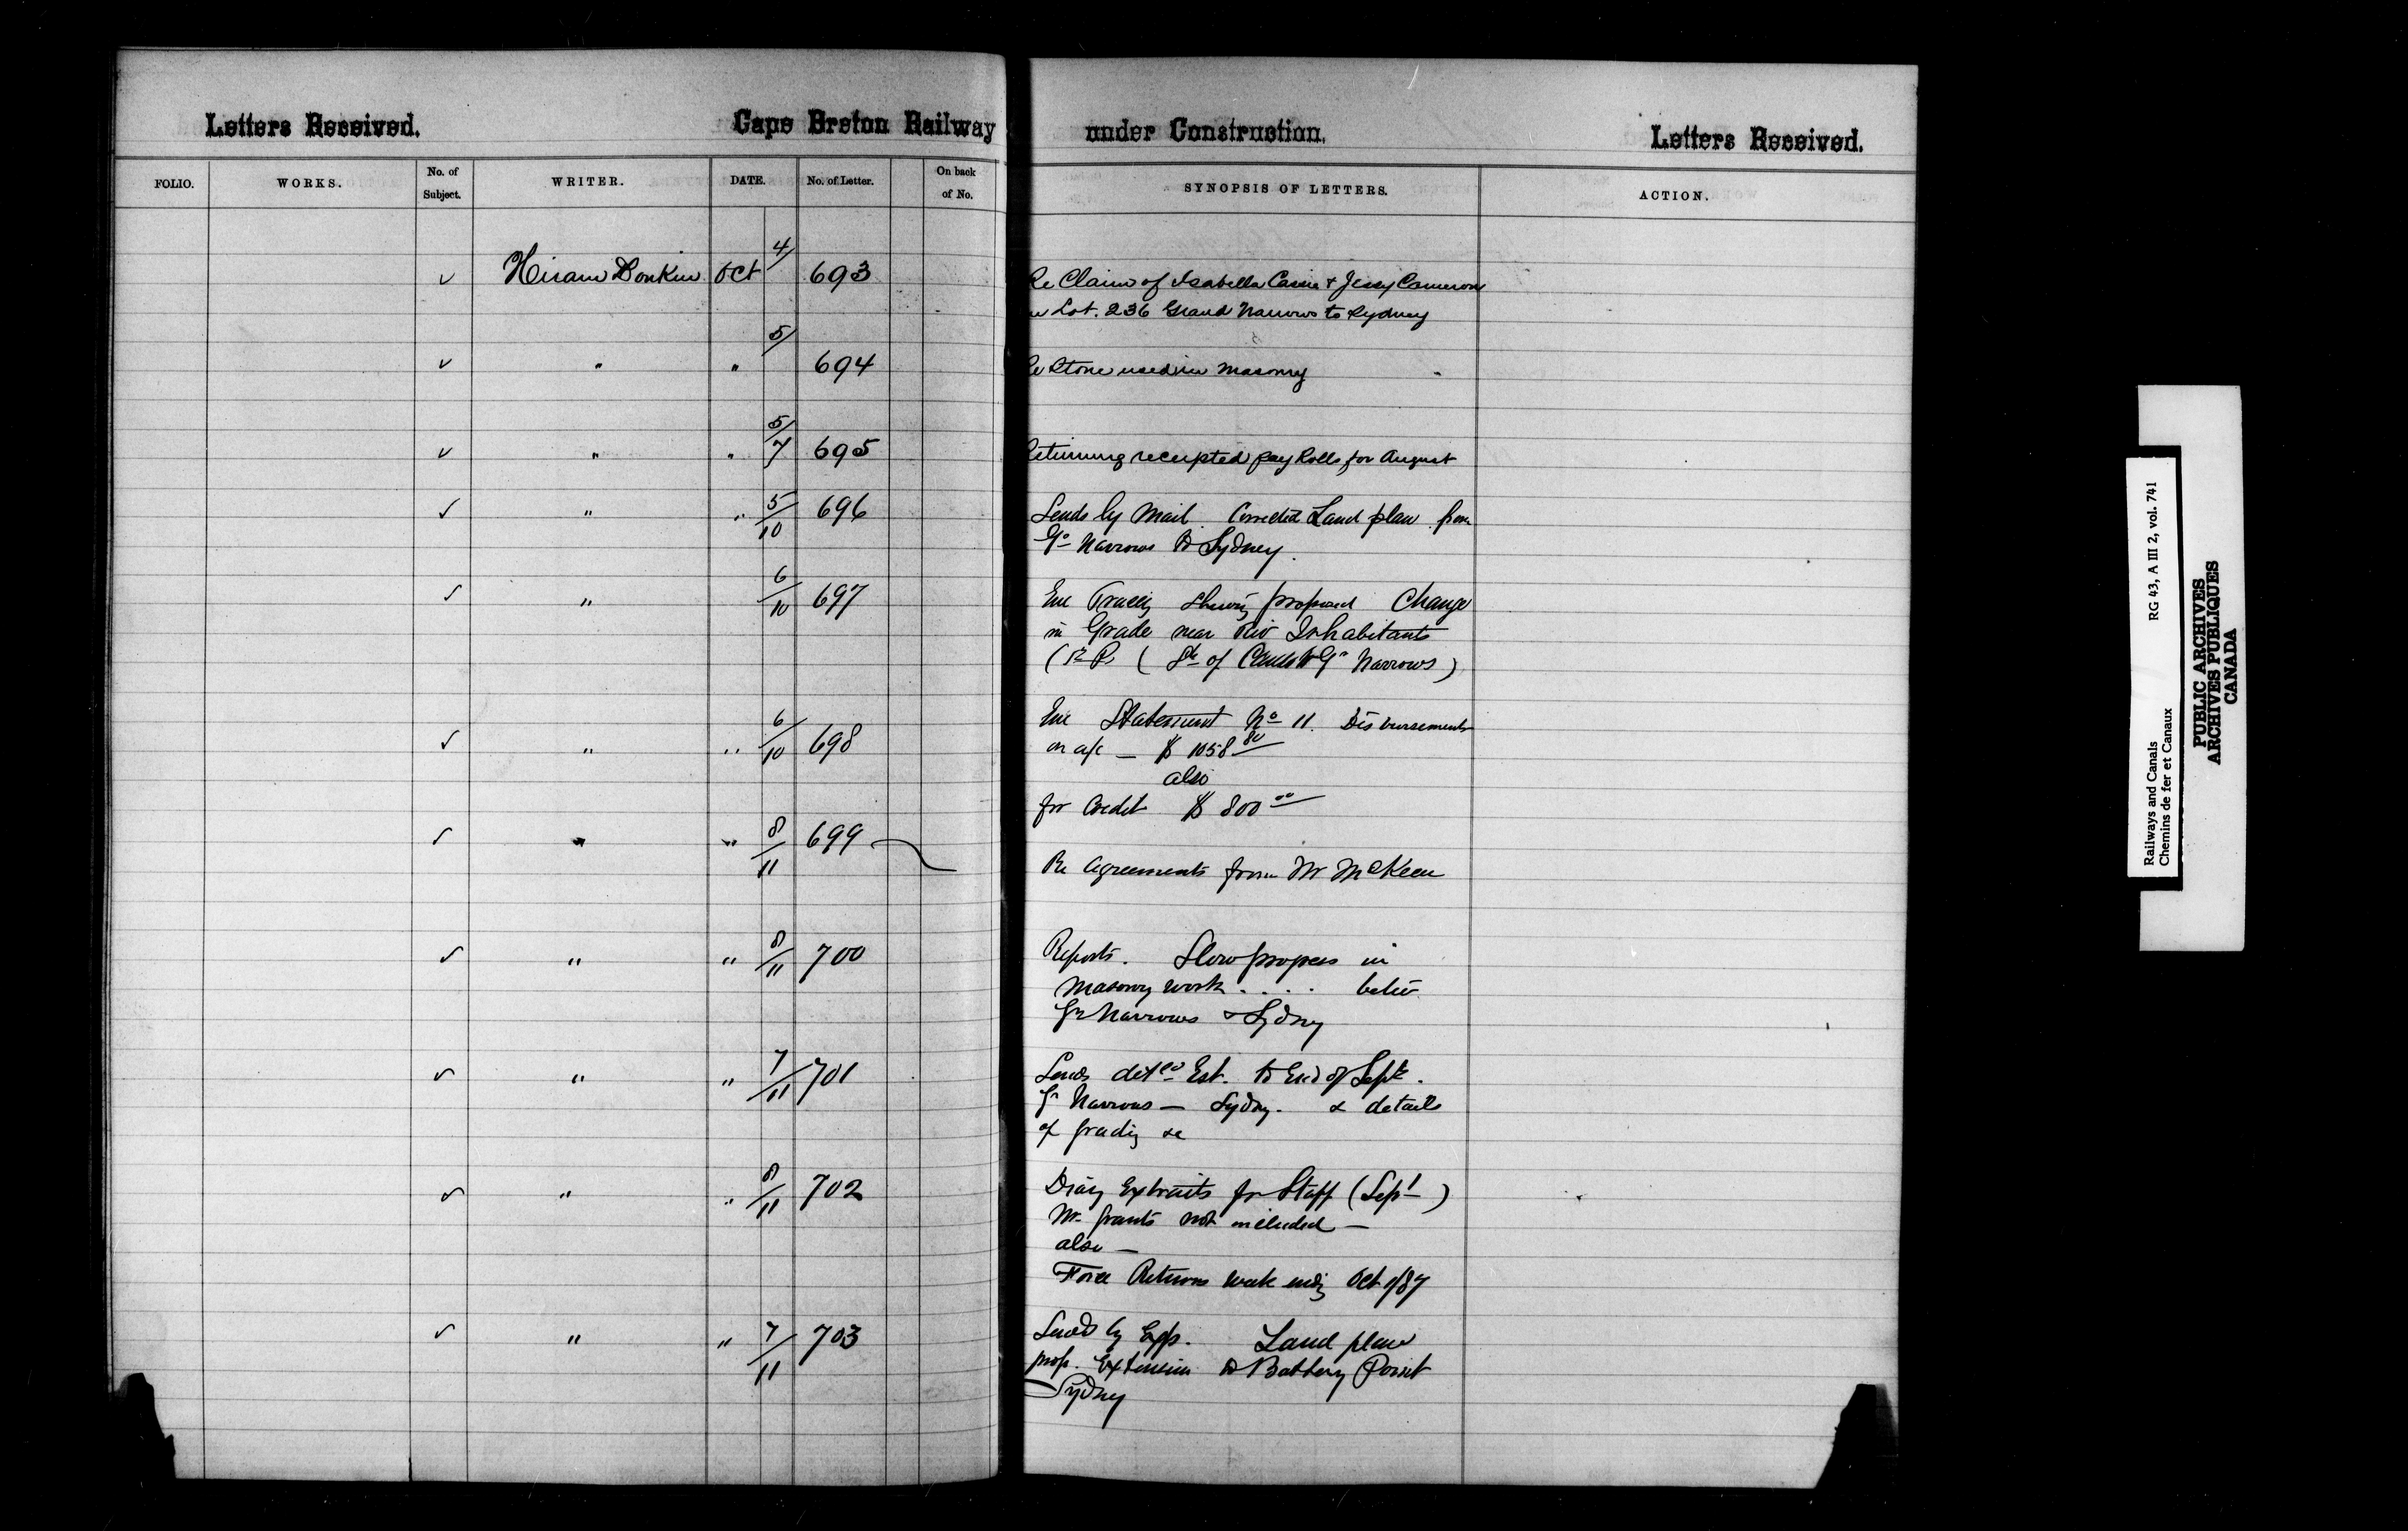 Letters Received. Cape Breton Railway under Construction. Letters Received.
FOLIO. WORKS. No. of Subject. WRITER. DATE. No. of Letter. On back of No. SYNOPSIS OF LETTERS. ACTION.
✓ Hiram Donkin Oct 4/ 693 Re Claim of Isabella Cassie & Jessy Cameron
Lot. 236 Grand Narrows to Sydney
✓ " " 5/ 694 Re Stone used in Masonry
✓ " " 5/7 695 Returning receipted pay Rolls for August
✓ " " 5/10 696 Sends by Mail. Corrected Land plan from
Gd Narrows to Sydney.
✓ " 6/10 697 Enc Tracing Shewing proposed Change
in Grade near Riv Inhabitants
Narrows)
✓ " " 6/10 698 Enc Statement No 11. Disbursements
on a/c — $ 1058 80
also
for Credit $ 800 00
✓ " " 8/11 699 Re Agreements from Mr McKeen
✓ " " 8/11 700 Reports. Slow progress in
Masonry work . . . . betw
Gd Narrows & Sydney
✓ " " 7/11 701 Sends detd Est. to End of Sept.
Gd Narrows — Sydney. & details
of grading &c
✓ " " 8/11 702 Diary Extracts for Staff (Sept)
Mr Grants not included —
also —
Force Returns week ending Oct 1/87
✓ " " 7/11 703 Sends by Exp. Land plan
prop. Extension to Battery Point
Sydney
Railways and Canals RG 43, A III 2, vol. 741
Chemins de fer et Canaux
PUBLIC ARCHIVES
ARCHIVES PUBLIQUES
CANADA